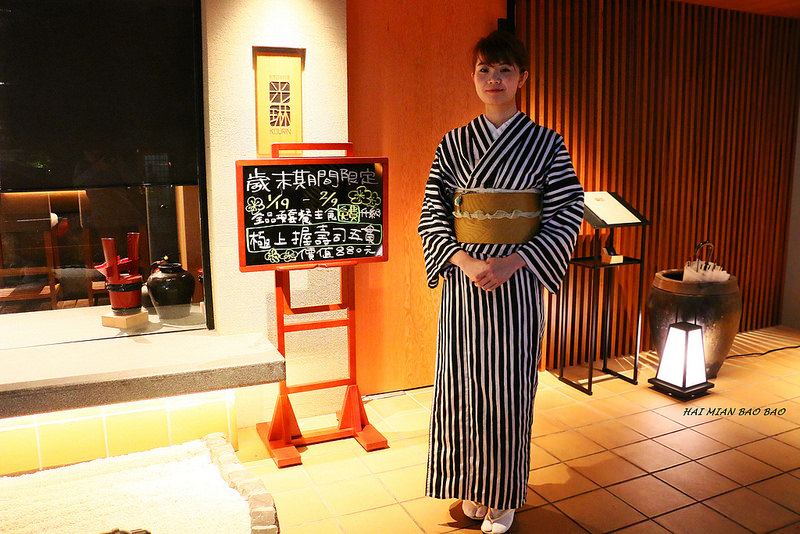 光琳
KOURIN
歲末期間限定
1/9 - 2/9
全品項套餐主食免費升級
極上握壽司五貫
價值880元
HAI MIAN BAO BAO